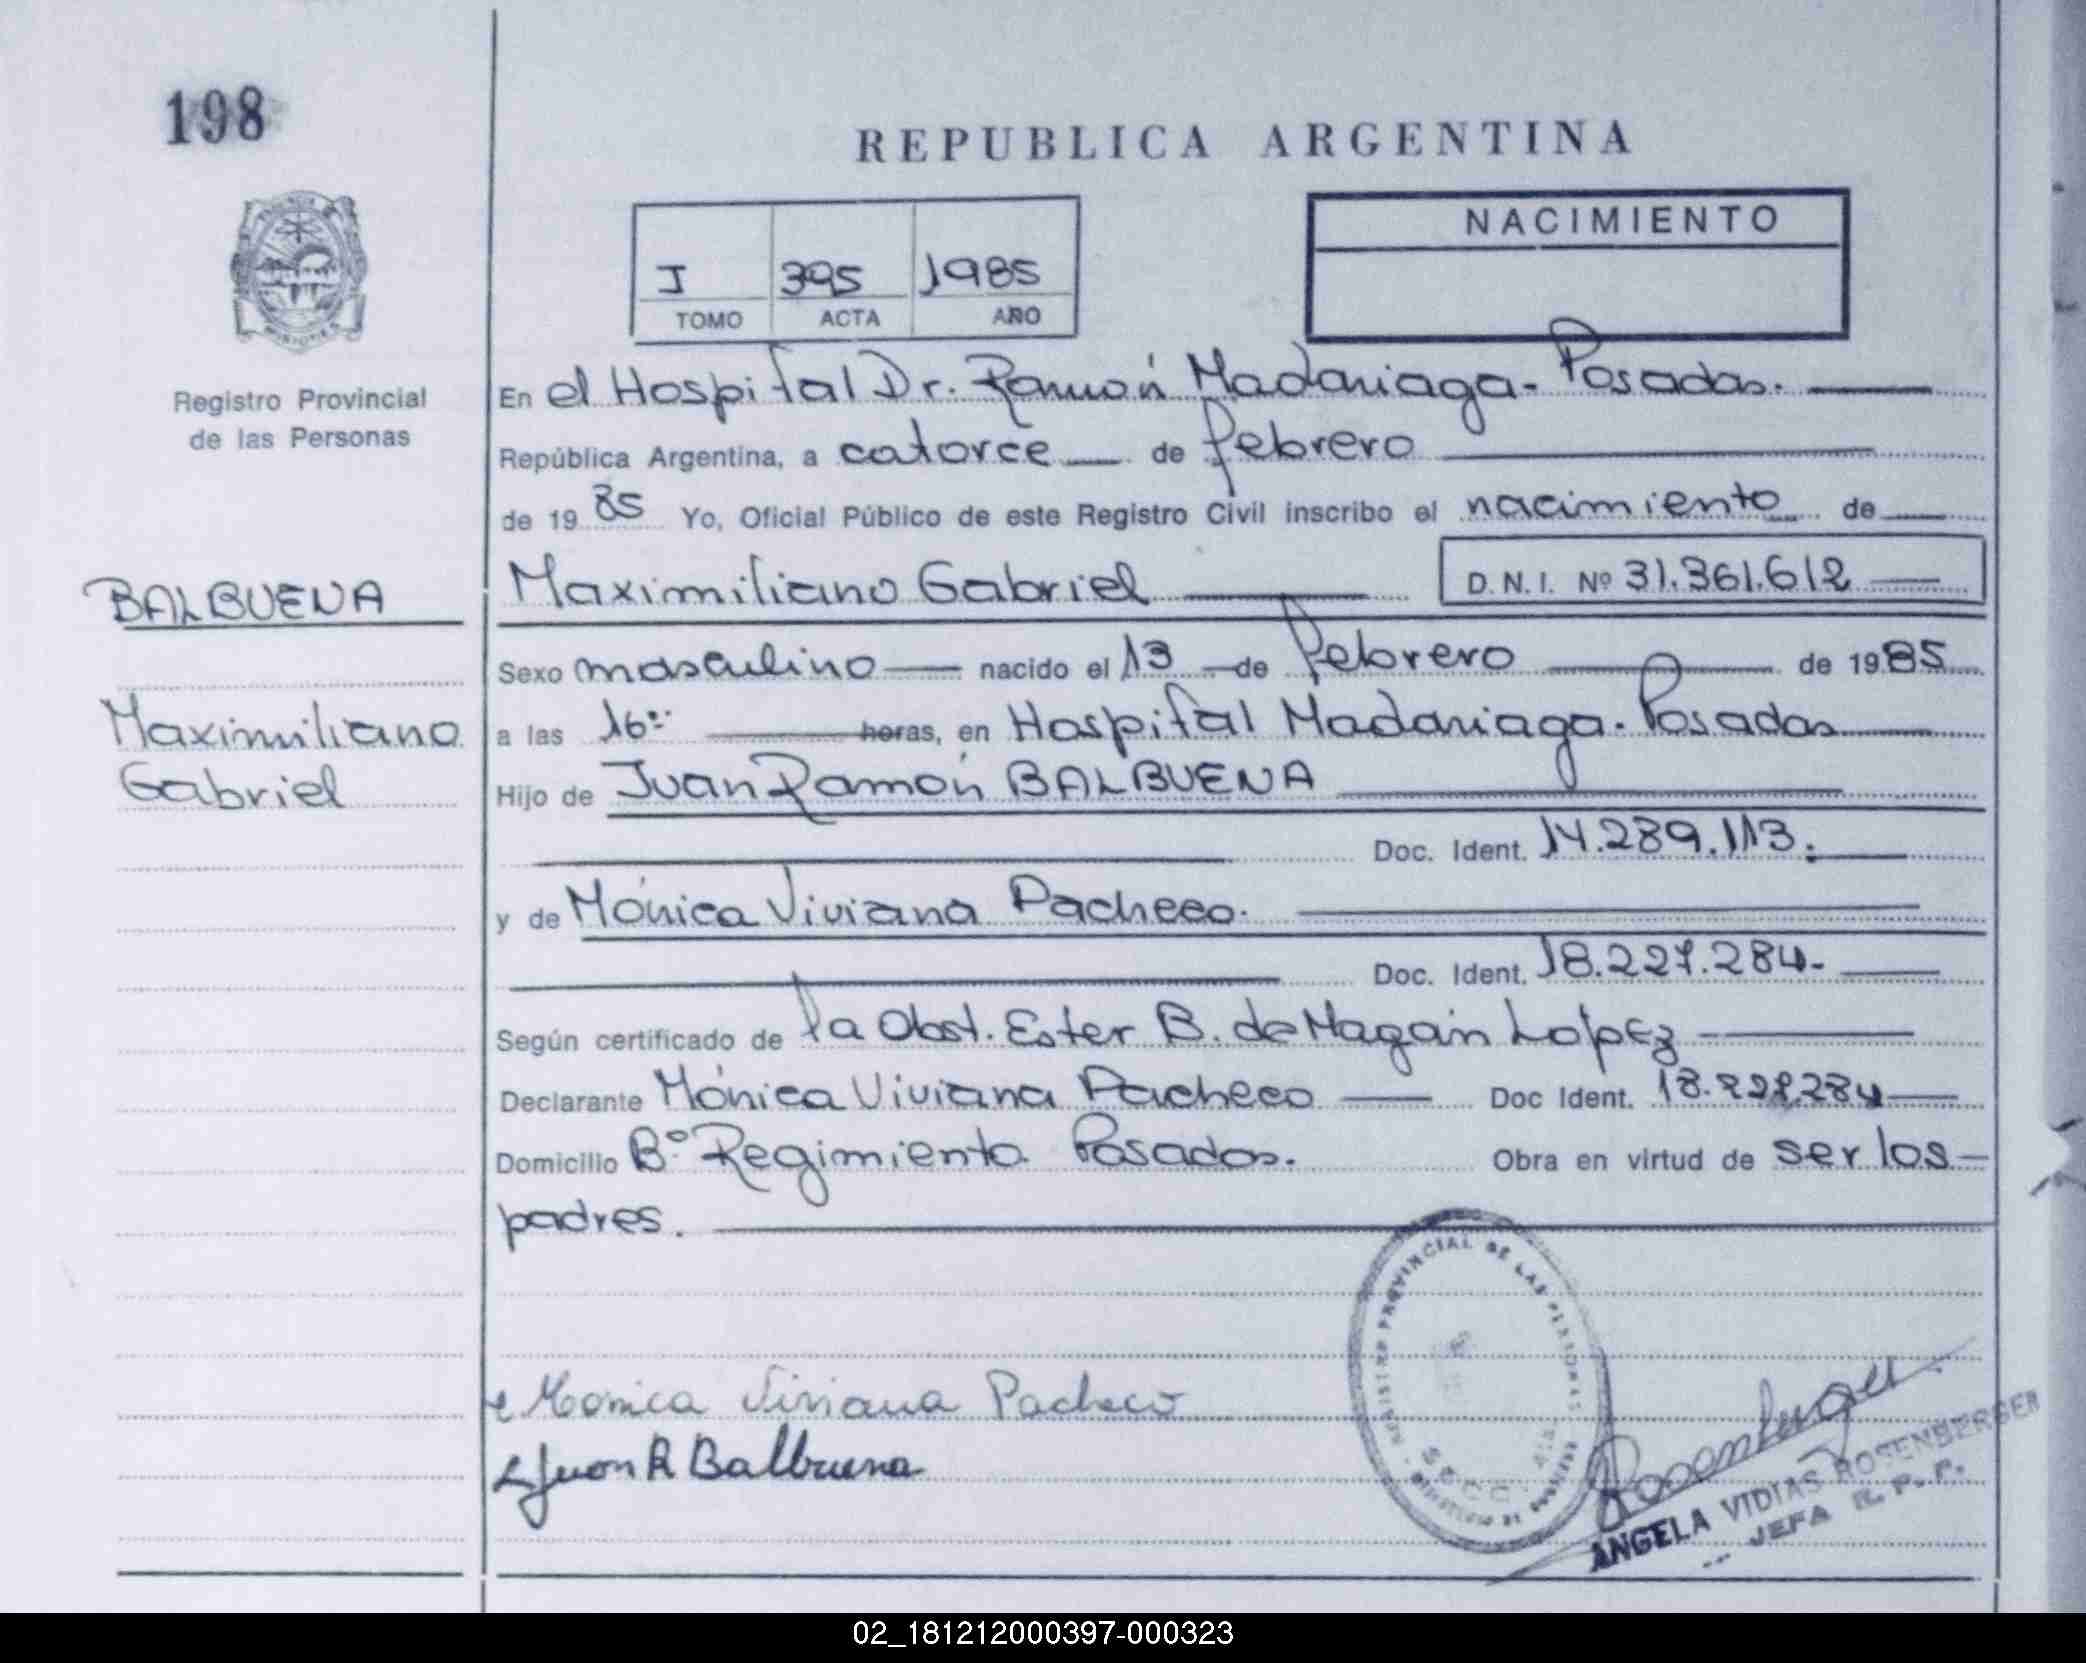 198
REPUBLICA ARGENTINA
NACIMIENTO
I 395 1985
TOMO ACTA AÑO
Registro Provincial
de las Personas
En el Hospital Dr. Ramón Madariaga - Posadas.
República Argentina, a catorce de febrero
de 19 85 Yo, Oficial Público de este Registro Civil inscribo el nacimiento de
BALBUENA
Maximiliano Gabriel D.N.I. Nº 31.361.612
Sexo masculino nacido el 13 de febrero de 19 85
Maximiliano
a las 16 horas, en Hospital Madariaga - Posadas
Gabriel
Hijo de Juan Ramón BALBUENA
Doc. Ident. 14.289.113.
y de Mónica Viviana Pacheco.
Doc. Ident. 18.227.284-
Según certificado de la Obst. Ester B. de Magán Lopez
Declarante Mónica Viviana Pacheco Doc Ident. 18.227.284
Domicilio Bº Regimiento Posadas. Obra en virtud de ser los
padres.
REGISTRO PROVINCIAL DE LAS PERSONAS
SECC.
Monica Viviana Pacheco
Juan R Balbuena
ANGELA VIDIAS ROSENBERGER
JEFA R. P. P.
02_181212000397-000323